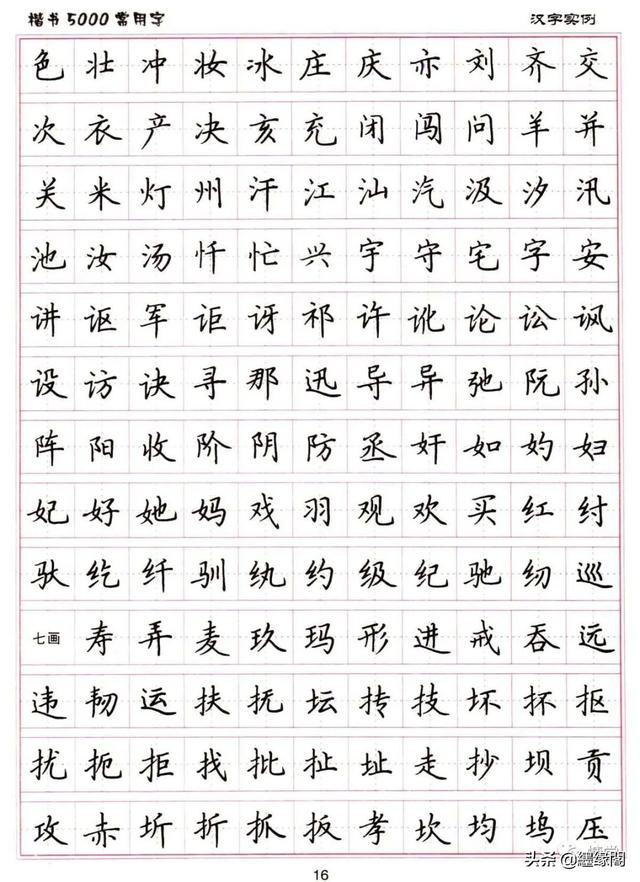 楷书5000常用字 汉字实例
色壮冲妆冰庄庆亦刘齐交
次衣产决亥充闭闯问羊并
关米灯州汗江汕汽汲汐汛
池汝汤忏忙兴宇守宅字安
讲讴军讵讶祁许讹论讼讽
设访诀寻那迅导异弛阮孙
阵阳收阶阴防丞奸如妁妇
妃好她妈戏羽观欢买红纣
驮纥纤驯纨约级纪驰纫巡
七画寿弄麦玖玛形进戒吞远
违韧运扶抚坛抟技坏抔抠
扰扼拒找批扯址走抄坝贡
攻赤圻折抓扳孝坎均坞压
头条@纏缘閣
16